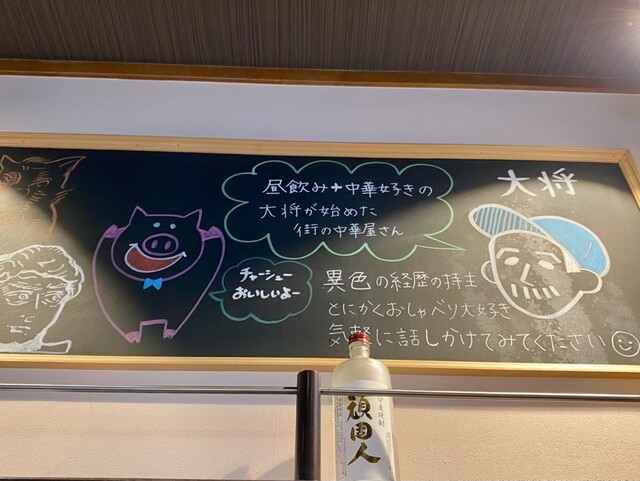 昼飲み+中華好きの
大将が始めた
街の中華屋さん
大将
チャーシュー
おいしいよー
異色の経歴の持主
とにかくおしゃべり大好き
気軽に話しかけてみてください
頑固人